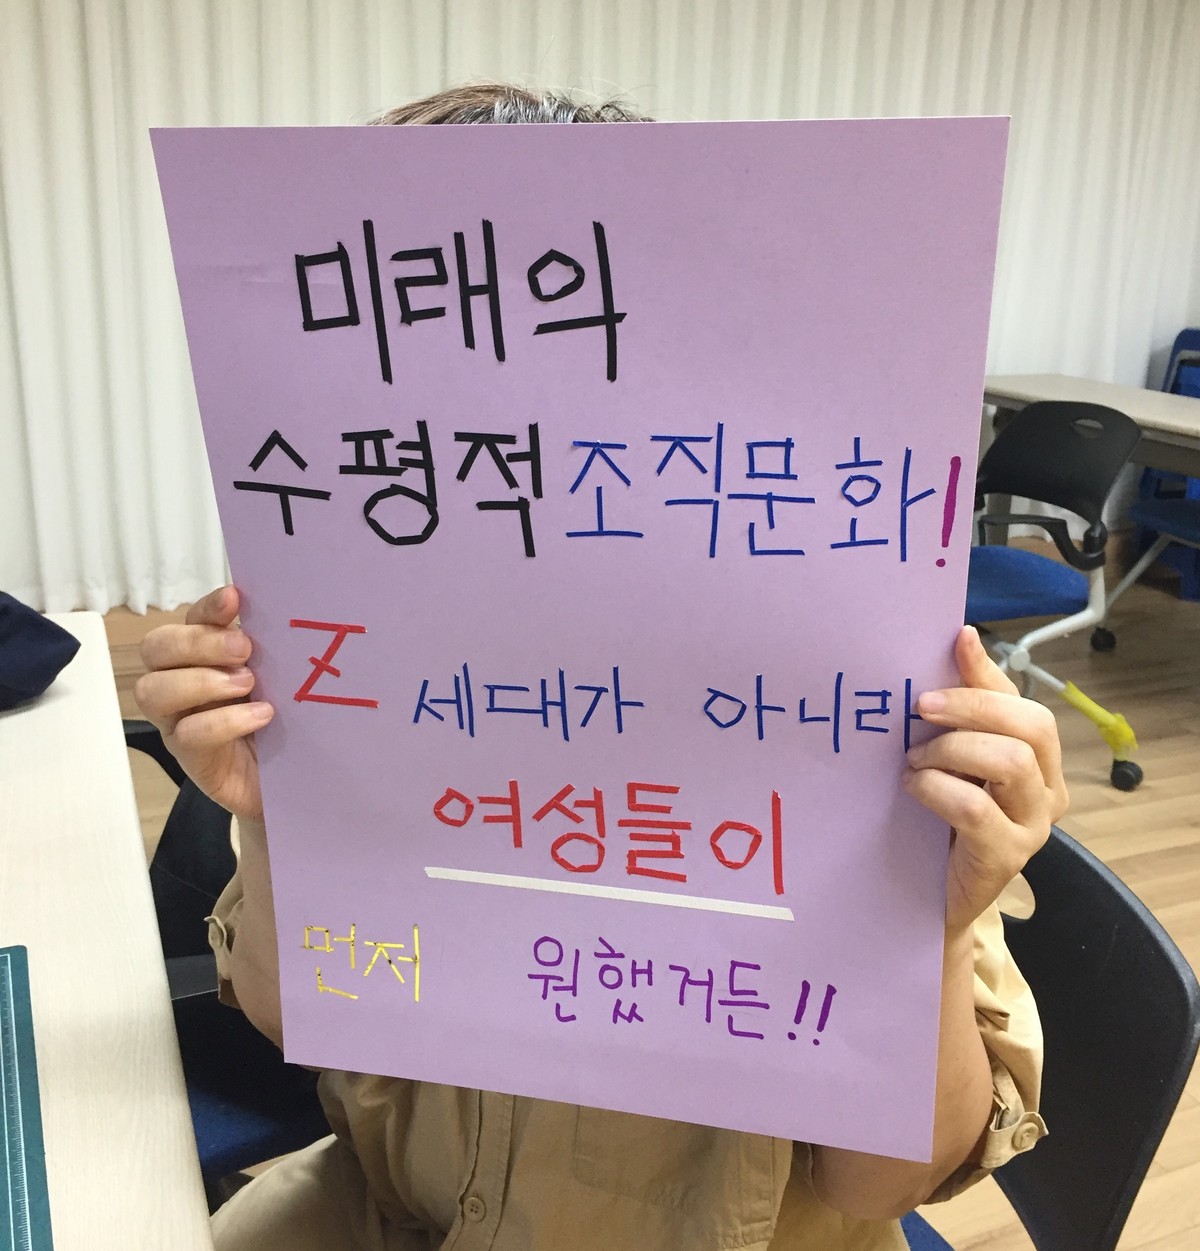 미래의
수평적 조직문화!
Z 세대가 아니라
여성들이
먼저 원했거든!!